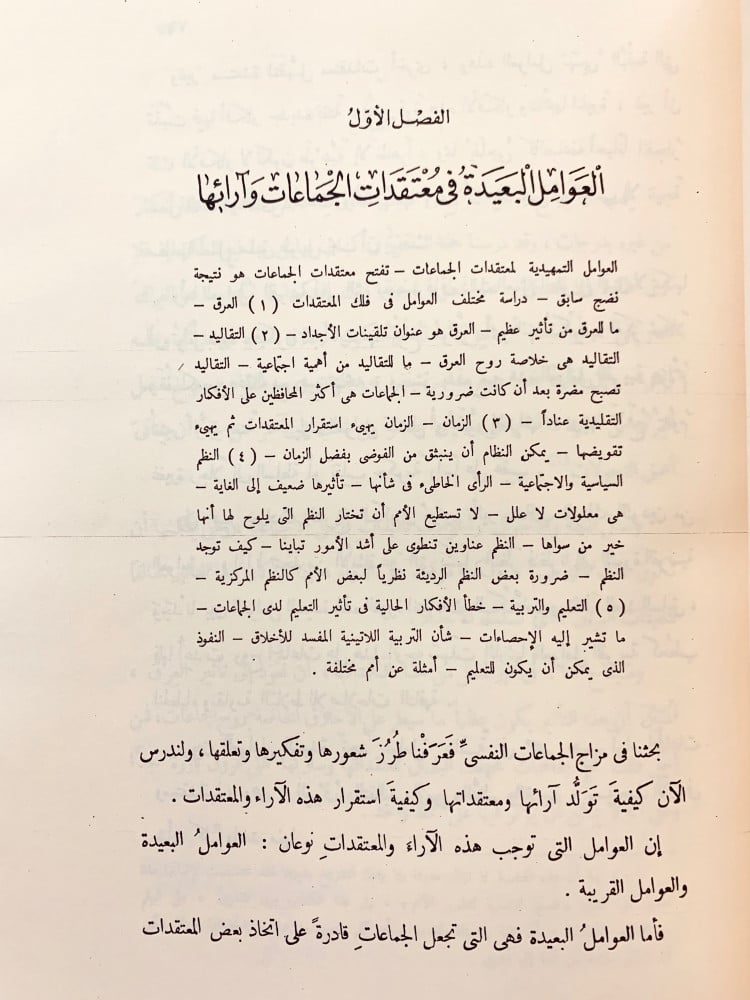 الفصل الأوّلُ
العَوامِل البَعيَدةُ في مُعْتَقَداتِ الجَماعَات وَآرائِها
العوامل التمهيدية لمعتقدات الجماعات – تفتح معتقدات الجماعات هو نتيجة
نضج سابق – دراسة مختلف العوامل فى فلك المعتقدات (١) العرق –
ما للعرق من تأثير عظيم – العرق هو عنوان تلقينات الأجداد – (٢) التقاليد –
التقاليد هى خلاصة روح العرق – ما للتقاليد من أهمية اجتماعية – التقاليد
تصبح مضرة بعد أن كانت ضرورية – الجماعات هى أكثر المحافظين على الأفكار
التقليدية عناداً – (٣) الزمان – الزمان يهيىء استقرار المعتقدات ثم يهيىء
تقويضها – يمكن النظام أن ينبثق من الفوضى بفضل الزمان – (٤) النظم
السياسية والاجتماعية – الرأى الخاطىء فى شأنها – تأثيرها ضعيف إلى الغاية –
هى معلولات لا علل – لا تستطيع الأمم أن تختار النظم التى يلوح لها أنها
خير من سواها – النظم عناوين تنطوى على أشد الأمور تباينا – كيف توجد
النظم – ضرورة بعض النظم الرديئة نظرياً لبعض الأمم كالنظم المركزية –
(٥) التعليم والتربية – خطأ الأفكار الحالية فى تأثير التعليم لدى الجماعات –
ما تشير إليه الإحصاءات – شأن التربية اللاتينية المفسد للأخلاق – النفوذ
الذى يمكن أن يكون للتعليم – أمثلة عن أمم مختلفة .
بحثنا فى مزاج الجماعات النفسىِّ فَعَرَفْنا طُرُزَ شعورها وتفكيرها وتعلقها ، ولندرس
الآن كيفيةَ تَوَلُّد آرائها ومعتقداتها وكيفيةَ استقرار هذه الآراء والمعتقدات .
إن العوامل التى توجب هذه الآراءَ والمعتقداتِ نوعان : العواملُ البعيدة
والعوامل القريبة .
فأما العواملُ البعيدة فهى التى تجعل الجماعاتِ قادرةً على اتخاذ بعض المعتقدات